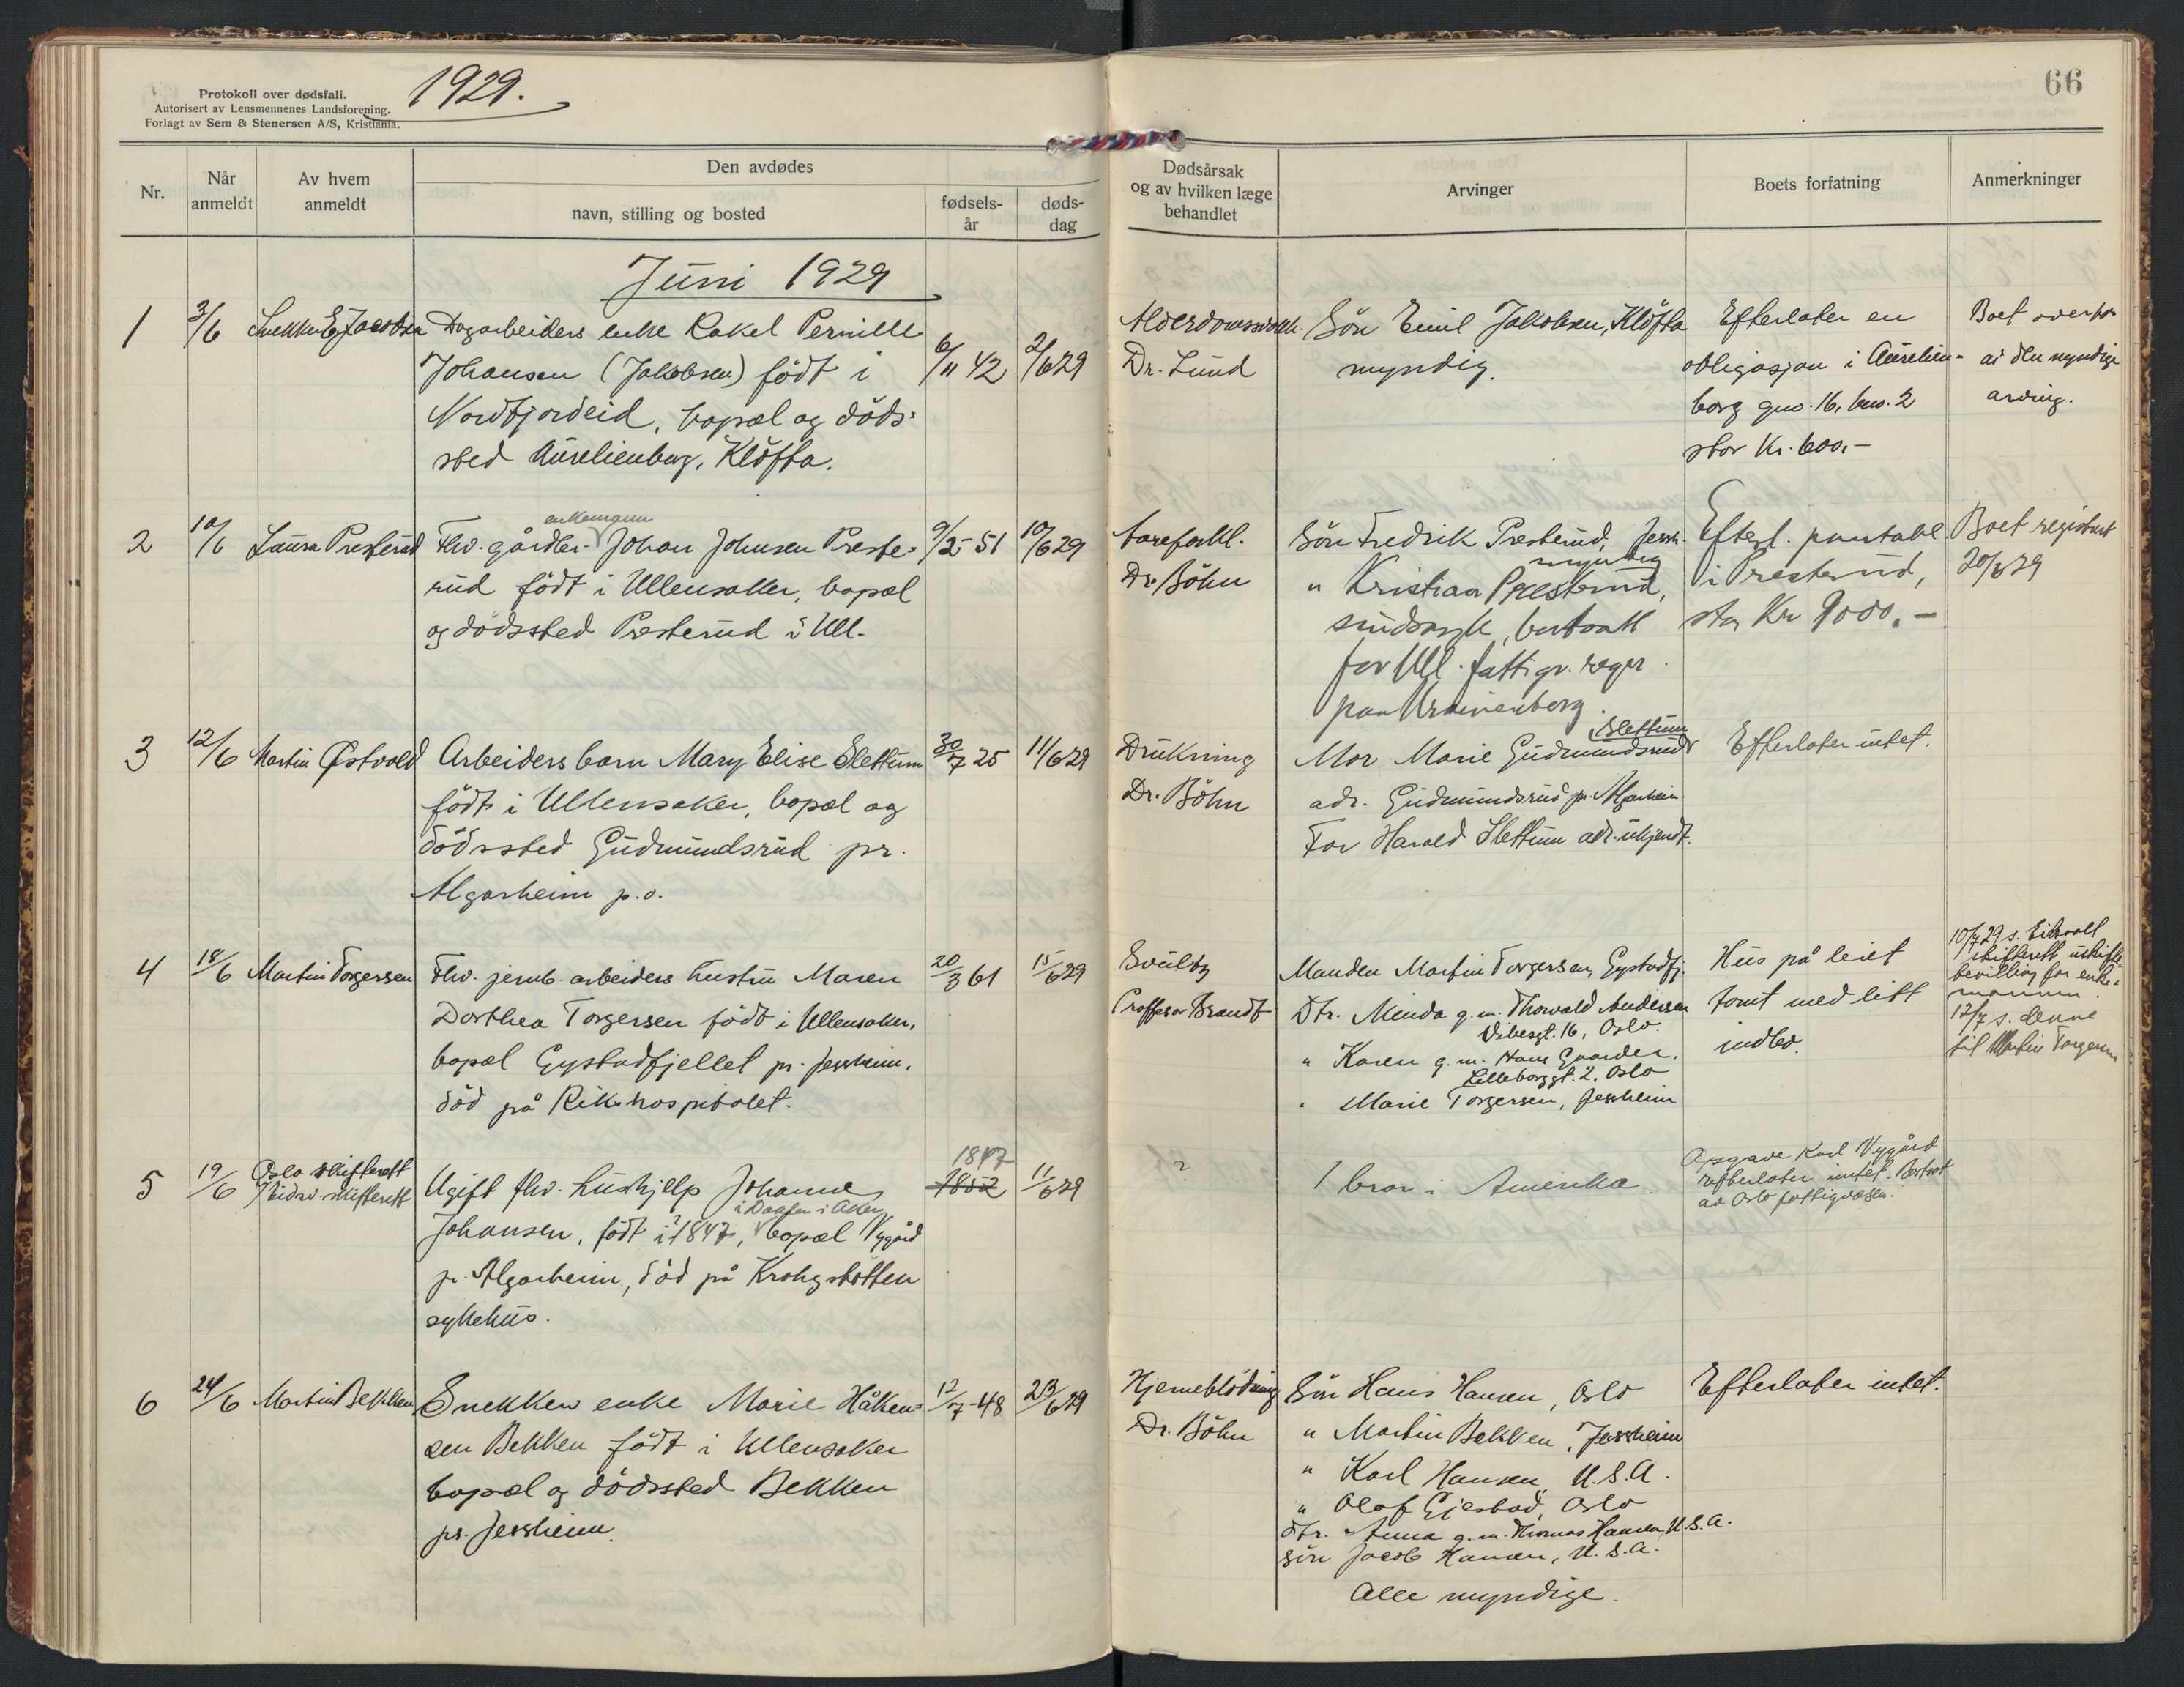 Protokoll over dødsfall.
Autorisert av Lensmennenes Landsforening.
Forlagt av Sem & Stenersen A/S, Kristiania.
1929.
66
Nr.
Når anmeldt
Av hvem anmeldt
Den avdødes
navn, stilling og bosted
fødsels-år
døds-dag
Dødsårsak og av hvilken læge behandlet
Arvinger
Boets forfatning
Anmerkninger
Juni 1929
1
3/6
Snekker E. Jacobsen
Dagarbeiders enke Rakel Pernille
Johansen (Jakobsen) født i
Nordfjordeid, bopæl og døds-
sted Aurelienborg, Kløfta.
6/11 42
2/6 29
Alderdomssvakh.
Dr. Lund
Søn Emil Jakobsen, Kløfta
myndig.
Efterlater en
obligasjon i Aurelien-
borg gno. 16, bno. 2
stor Kr. 600.-
Boet overtas
av den myndige
arving.
2
10/6
Laura Presterud
enkemann
Fhv. gårdbr. Johan Johnsen Preste-
rud født i Ullensaker, bopæl
og dødssted Presterud i Ull.
9/2-51
10/6 29
Aareforkl.
Dr. Böhn
Søn Fredrik Presterud, Jessh.
myndig
" Kristian Presterud,
sindssyk, bortsatt
for Ull. fattigv. regn.
paa
Efterl. pantobl.
i Presterud,
stor Kr 9000.-
Boet registrert
20/6 29
3
12/6
Martin Østvold
Arbeiders barn Mary Elise Slettum
født i Ullensaker, bopæl og
dødssted Gudmundsrud pr.
Algarheim p.o.
30/7 25
11/6 29
Drukning
Dr. Böhn
Slettum
Mor Marie Gudmundsrud
adr. Gudmundsrud pr. Algarheim
Far Harald Slettum adr. ukjendt.
Efterlater intet.
4
18/6
Martin Torgersen
Fhv. jernb. arbeiders hustru Maren
Dorthea Torgersen født i Ullensaker,
bopæl Gystadfjellet pr. Jessheim,
død på Rikshospitalet.
20/3 61
15/6 29
Svulst
Proffesor Brandt
Manden Martin Torgersen, Gystadfj.
Dtr. Minda g.m. Thorvald Andersen
Vibesgt. 16, Oslo.
" Karen g.m. Hans Gaarder,
Lilleborggt. 2, Oslo
" Marie Torgersen, Jessheim
Hus på leiet
tomt med litt
indbo.
10/7 29 s. Eidsvoll
skifterett uskifte-
bevilling for enke-
mannen.
12/7 s. denne
til Martin Torgersen
5
19/6
Oslo skifterett
/ Eidsv. skifterett
Ugift fhv. hushjelp Johanne
i Aker
Johansen, født i ? 1847, bopæl Nygård
pr. Algarheim, død på Krohgstøtten
sykehus.
1847
1852
11/6 29
?
1 bror i Amerika.
Opgave Karl Nygård
efterlater intet. Bortsat
av Oslo fattigvæsen.
6
24/6
Martin Bekken
Snekker enke Marie Håken-
sen Bekken født i Ullensaker
bopæl og dødssted Bekken
pr. Jessheim.
12/7-48
23/6 29
Hjerneblødning
Dr. Böhn
Søn Hans Hansen, Oslo
" Martin Bekken, Jessheim
" Karl Hansen, U.S.A.
" Olaf Gjestad, Oslo
Dtr. Anna g.m. Thomas Hansen, U.S.A.
Søn Jacob Hansen, U.S.A.
Alle myndige.
Efterlater intet.